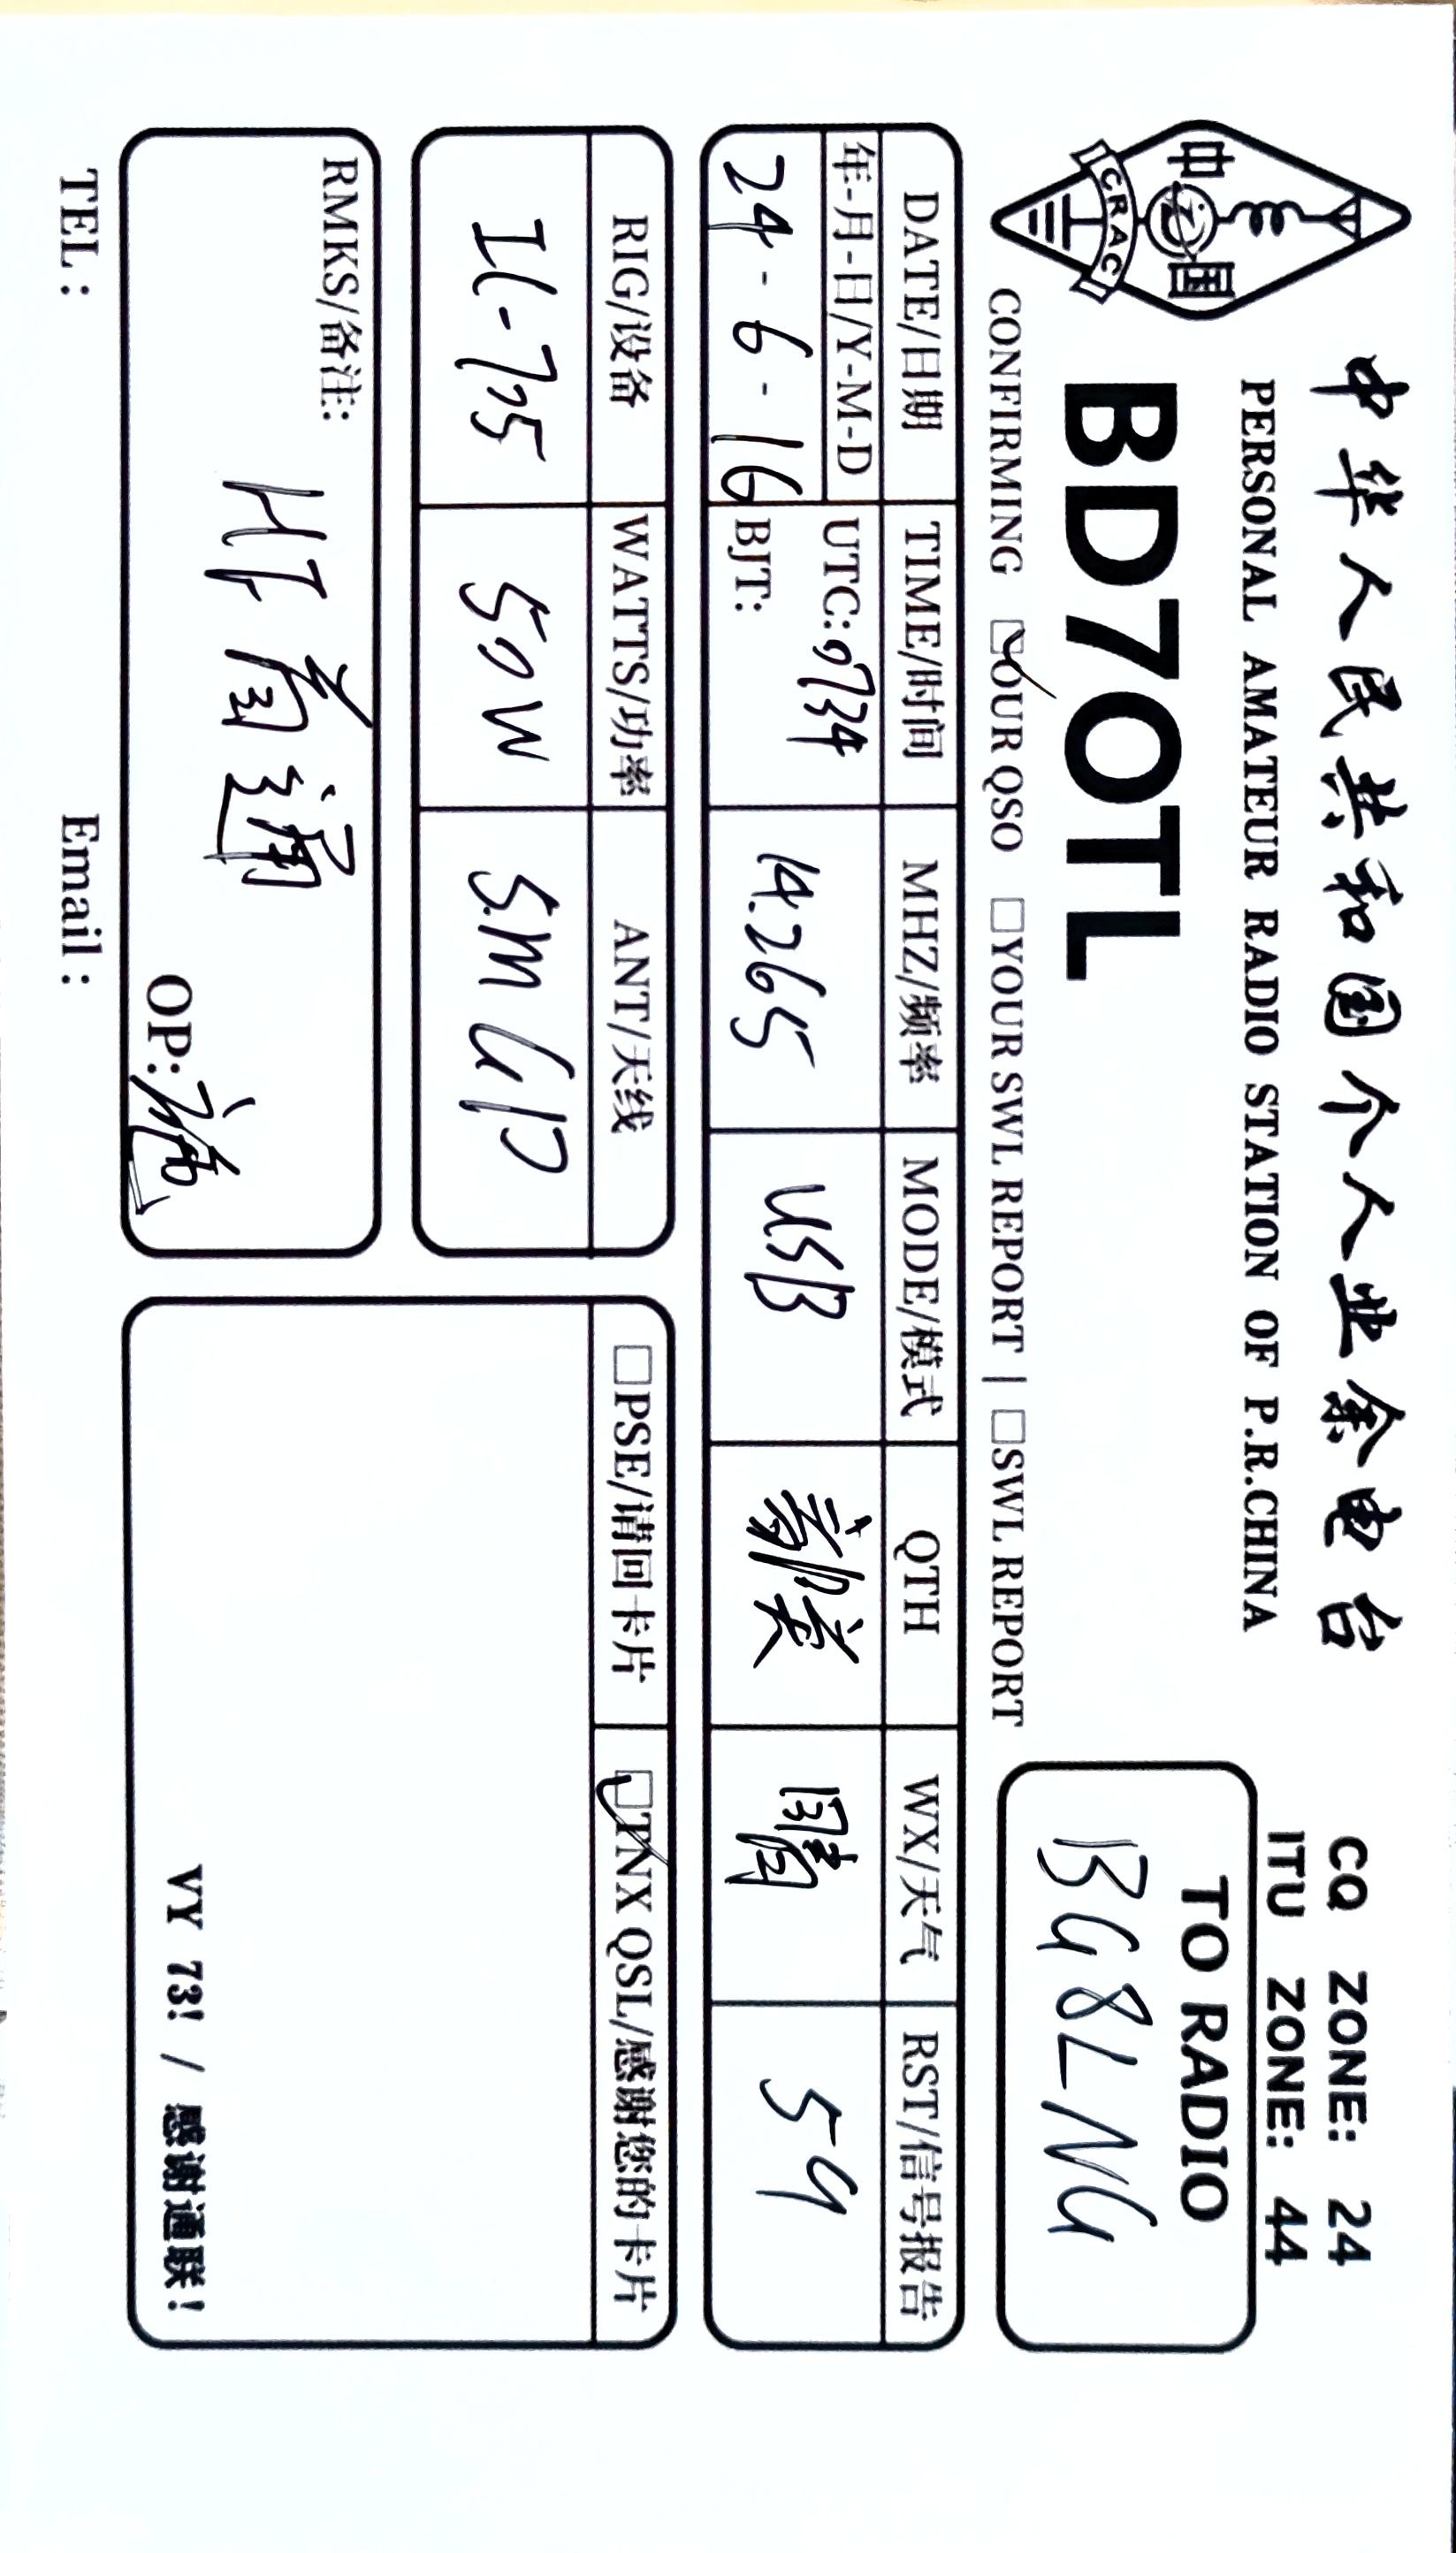 中华人民共和国个人业余电台
PERSONAL AMATEUR RADIO STATION OF P.R.CHINA
CQ ZONE: 24
ITU ZONE: 44
中国
CRAC
BD7OTL
TO RADIO
BG8LNG
CONFIRMING ☑OUR QSO □YOUR SWL REPORT | □SWL REPORT
DATE/日期 TIME/时间 MHZ/频率 MODE/模式 QTH WX/天气 RST/信号报告
年-月-日/Y-M-D UTC: 0734
24-6-16 BJT: 14.265 USB 韶关 晴 59
RIG/设备 WATTS/功率 ANT/天线
IC-705 50W GP
□PSE/请回卡片 ☑TNX QSL/感谢您的卡片
RMKS/备注:
HF首通
OP:
VY 73! / 感谢通联!
TEL: Email: